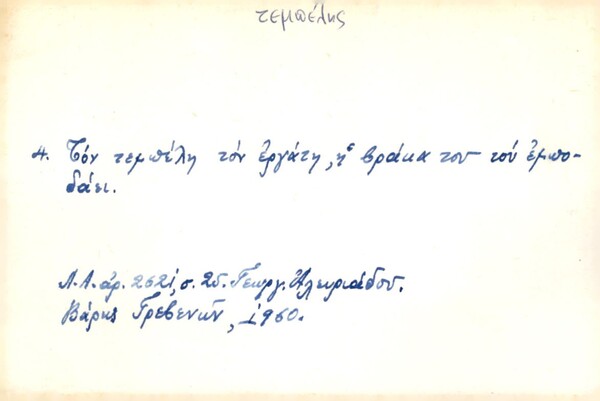 τεμπέλης
4. Τόν τεμπέλη τόν ἐργάτη, ἡ βράκα του τού ἐμπο-
δάει.
Λ.Α. ἀρ. 2621, σ. 25. Γεωργ. Ἀλευριάδου.
Βάρης Γρεβενῶν, 1960.